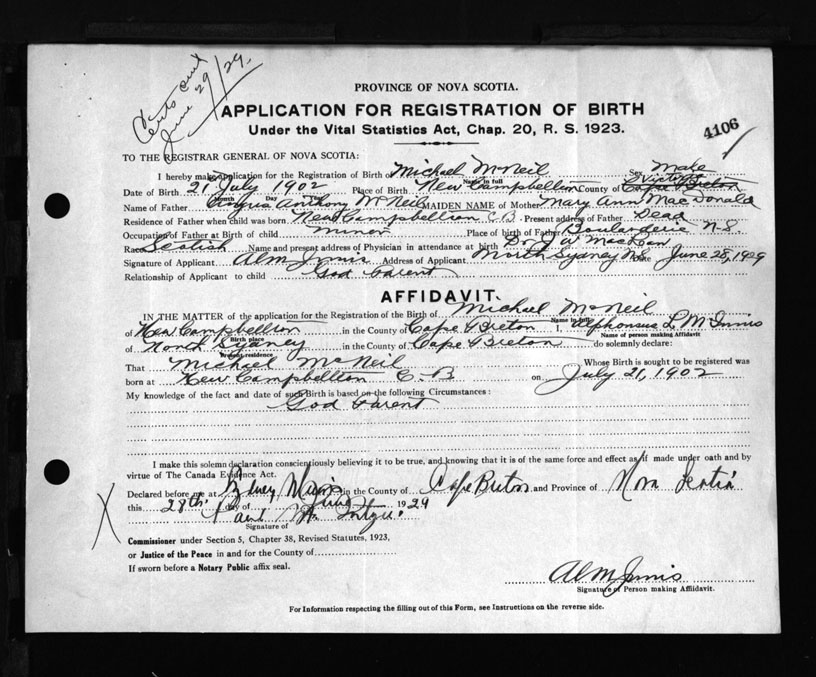 Certs sent
June 29/29.
PROVINCE OF NOVA SCOTIA.
APPLICATION FOR REGISTRATION OF BIRTH
Under the Vital Statistics Act, Chap. 20, R. S. 1923.
4106
TO THE REGISTRAR GENERAL OF NOVA SCOTIA:
I hereby make application for the Registration of Birth of Michael McNeil Sex Male
Name in full
Victoria
Date of Birth 21 July 1902 Place of Birth New Campbellton County of Cape Breton
Month Day Year
Name of Father Angus Anthony McNeil MAIDEN NAME of Mother Mary Ann MacDonald
Residence of Father when child was born New Campbellton C B Present address of Father Dead
Occupation of Father at Birth of child minor Place of birth of Father Boularderie N-S
Race Scotish Name and present address of Physician in attendance at birth Dr J W
Signature of Applicant Address of Applicant North Sydney NS Date June 28, 1929
Relationship of Applicant to child God Parent
AFFIDAVIT.
IN THE MATTER of the application for the Registration of the Birth of Michael McNeil
Name in full
of New Campbellton in the County of Cape Breton I, Alphonsus L McInnis
Birth place Name of person making Affidavit
of North Sydney in the County of Cape Breton do solemnly declare:
Present residence
That Michael McNeil Whose Birth is sought to be registered was
born at New Campbellton C-B on July 21, 1902
My knowledge of the fact and date of such Birth is based on the following Circumstances:
God Parent
I make this solemn declaration conscientiously believing it to be true, and knowing that it is of the same force and effect as if made under oath and by
virtue of The Canada Evidence Act.
Declared before me at Sydney Mines in the County of Cape Breton and Province of Nova Scotia
this 28th day of June 1929
Signature of
X
Commissioner under Section 5, Chapter 38, Revised Statutes, 1923,
or Justice of the Peace in and for the County of
If sworn before a Notary Public affix seal.
Al McInnis
Signature of Person making Affidavit.
For Information respecting the filling out of this Form, see Instructions on the reverse side.